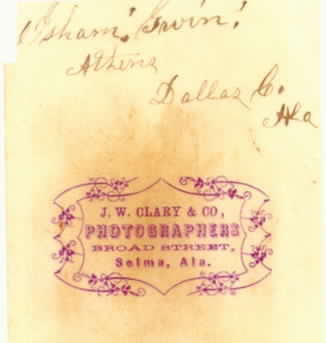 Isham Ervin
Athens
Dallas Co.
Ala
J. W. CLARY & CO,
PHOTOGRAPHERS
BROAD STREET,
Selma, Ala.